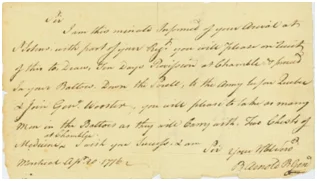 Sir
I am this minute Informed of your Arrival at
St Johns with part of your Regt. you will please on Receipt
of this to Draw Ten Days Provisions at Chamble & proceed
in your Battoes Down the River to the Army before Quebec
& Join Genl. Wooster you will please to take as many
Men in the Battoes as they will Carry with Two Chests of
Medicine I wish you Success & am Sir Yours
at Chamble
Montreal Apl. 1776
B Arnold B Genl